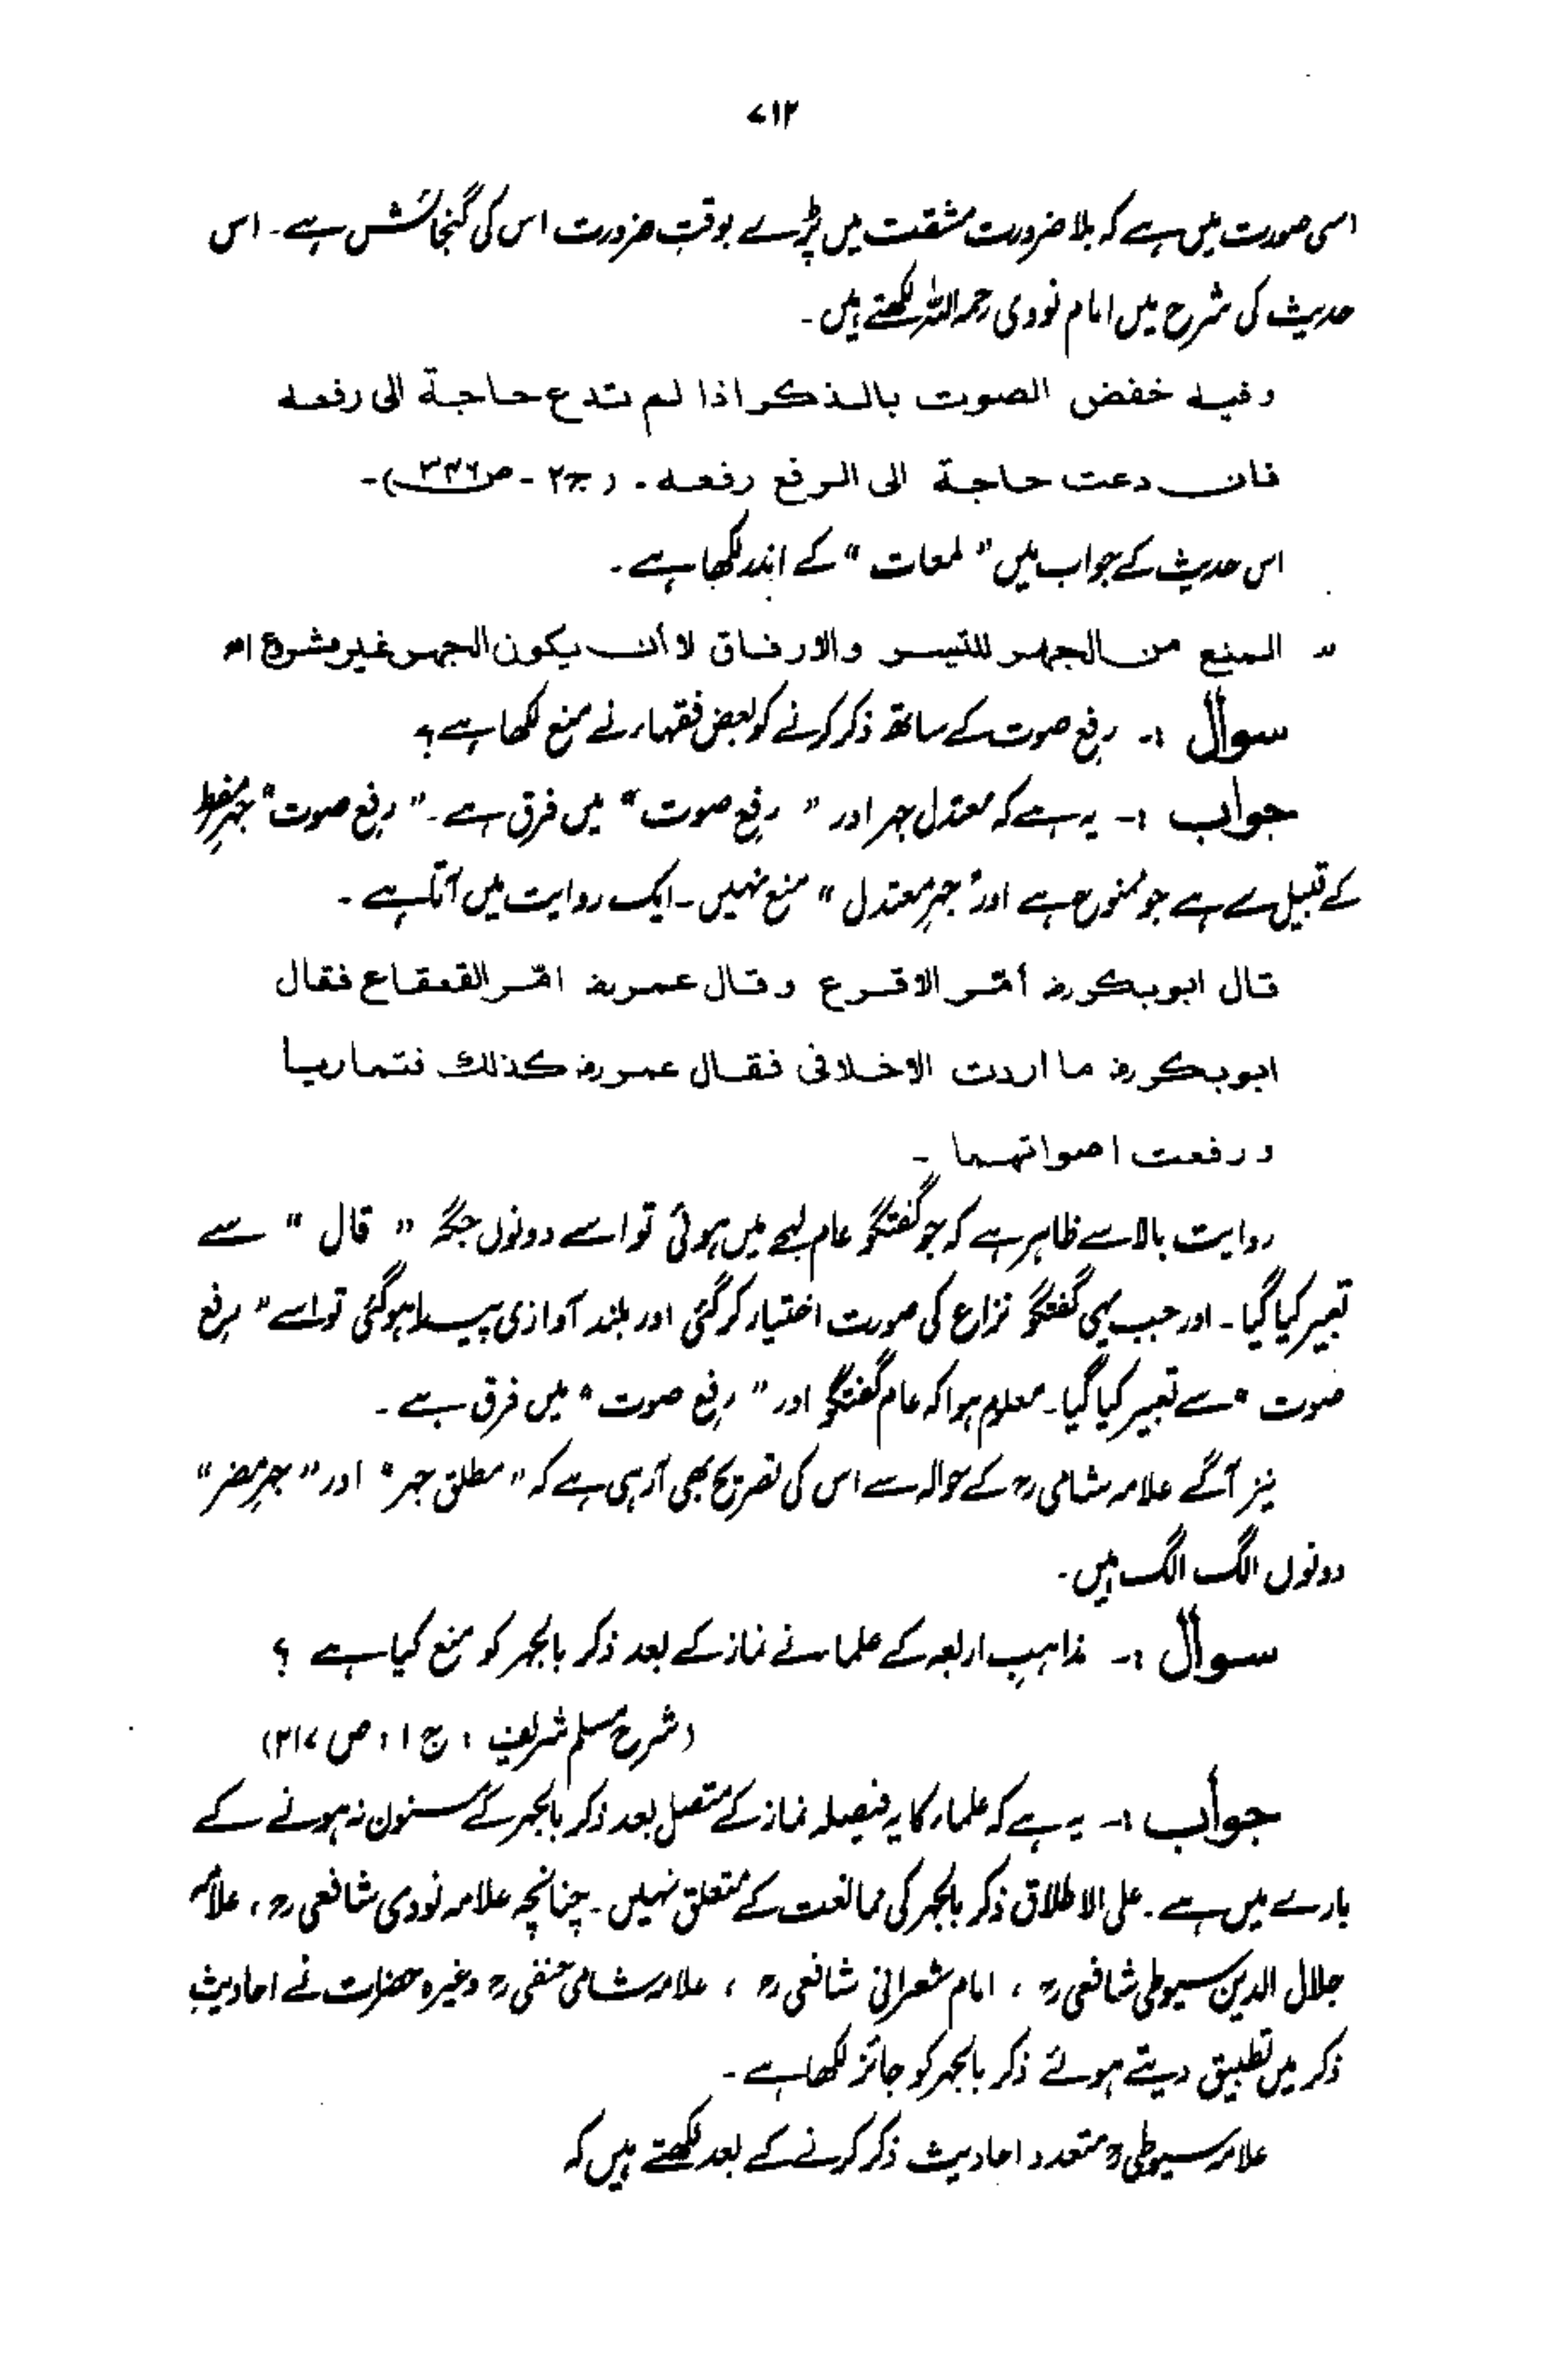 ۷۱۲
اسی صورت میں ہے کہ بلا ضرورت مشقت میں پڑے بوقتِ ضرورت اس کی گنجائش ہے۔ اس
حدیث کی شرح میں امام نووی رحمہ اللہ لکھتے ہیں۔
وفیه خفض الصوت بالذکر اذا لم تدع حاجة الی رفعه
فان دعت حاجة الی الرفع رفعه۔ (ج۲ - ص۳۴۶)۔
اس حدیث کے جواب میں "لمعات" کے اندر لکھا ہے۔
" المنع من الجهر للتیسر والارفاق لا أن یکون الجهر غیر مشروع اھ
سوال :۔ رفع صوت کے ساتھ ذکر کرنے کو بعض فقہاء نے منع لکھا ہے؟
جواب :۔ یہ ہے کہ معتدل جہر اور "رفع صوت" میں فرق ہے۔ "رفع صوت" جہرِ مفرط
کے قبیل سے ہے جو ممنوع ہے اور "جہرِ معتدل" منع نہیں۔ ایک روایت میں آتا ہے۔
قال ابوبکر رض أمّر الاقرع وقال عمر رض امّر القعقاع فقال
ابوبکر رض ما اردت الاخلافی فقال عمر رض کذلك فتماریا
ورفعت اصواتهما۔
روایت بالا سے ظاہر ہے کہ جو گفتگو عام لہجے میں ہوئی تو اسے دونوں جگہ "قال" سے
تعبیر کیا گیا۔ اور جب یہی گفتگو نزاع کی صورت اختیار کر گئی اور بلند آوازی پیدا ہو گئی تو اسے "رفع
صوت" سے تعبیر کیا گیا۔ معلوم ہوا کہ عام گفتگو اور "رفع صوت" میں فرق ہے۔
نیز آگے علامہ شامی رح کے حوالہ سے اس کی تصریح بھی آ رہی ہے کہ "مطلق جہر" اور "جہرِ مضر"
دونوں الگ الگ ہیں۔
سوال :۔ مذاہبِ اربعہ کے علماء نے نماز کے بعد ذکر بالجہر کو منع کیا ہے؟
(شرح مسلم شریف، ج ۱، ص ۲۱۷)
جواب :۔ یہ ہے کہ علماء کا یہ فیصلہ نماز کے متصل بعد ذکر بالجہر کے مسنون نہ ہونے کے
بارے میں ہے۔ علی الاطلاق ذکر بالجہر کی ممانعت کے متعلق نہیں۔ چنانچہ علامہ نووی شافعی رح، علامہ
جلال الدین سیوطی شافعی رح، امام شعرانی شافعی رح، علامہ شامی حنفی رح وغیرہ حضرات نے احادیثِ
ذکر میں تطبیق دیتے ہوئے ذکر بالجہر کو جائز لکھا ہے۔
علامہ سیوطی رح متعدد احادیث ذکر کرنے کے بعد لکھتے ہیں کہ